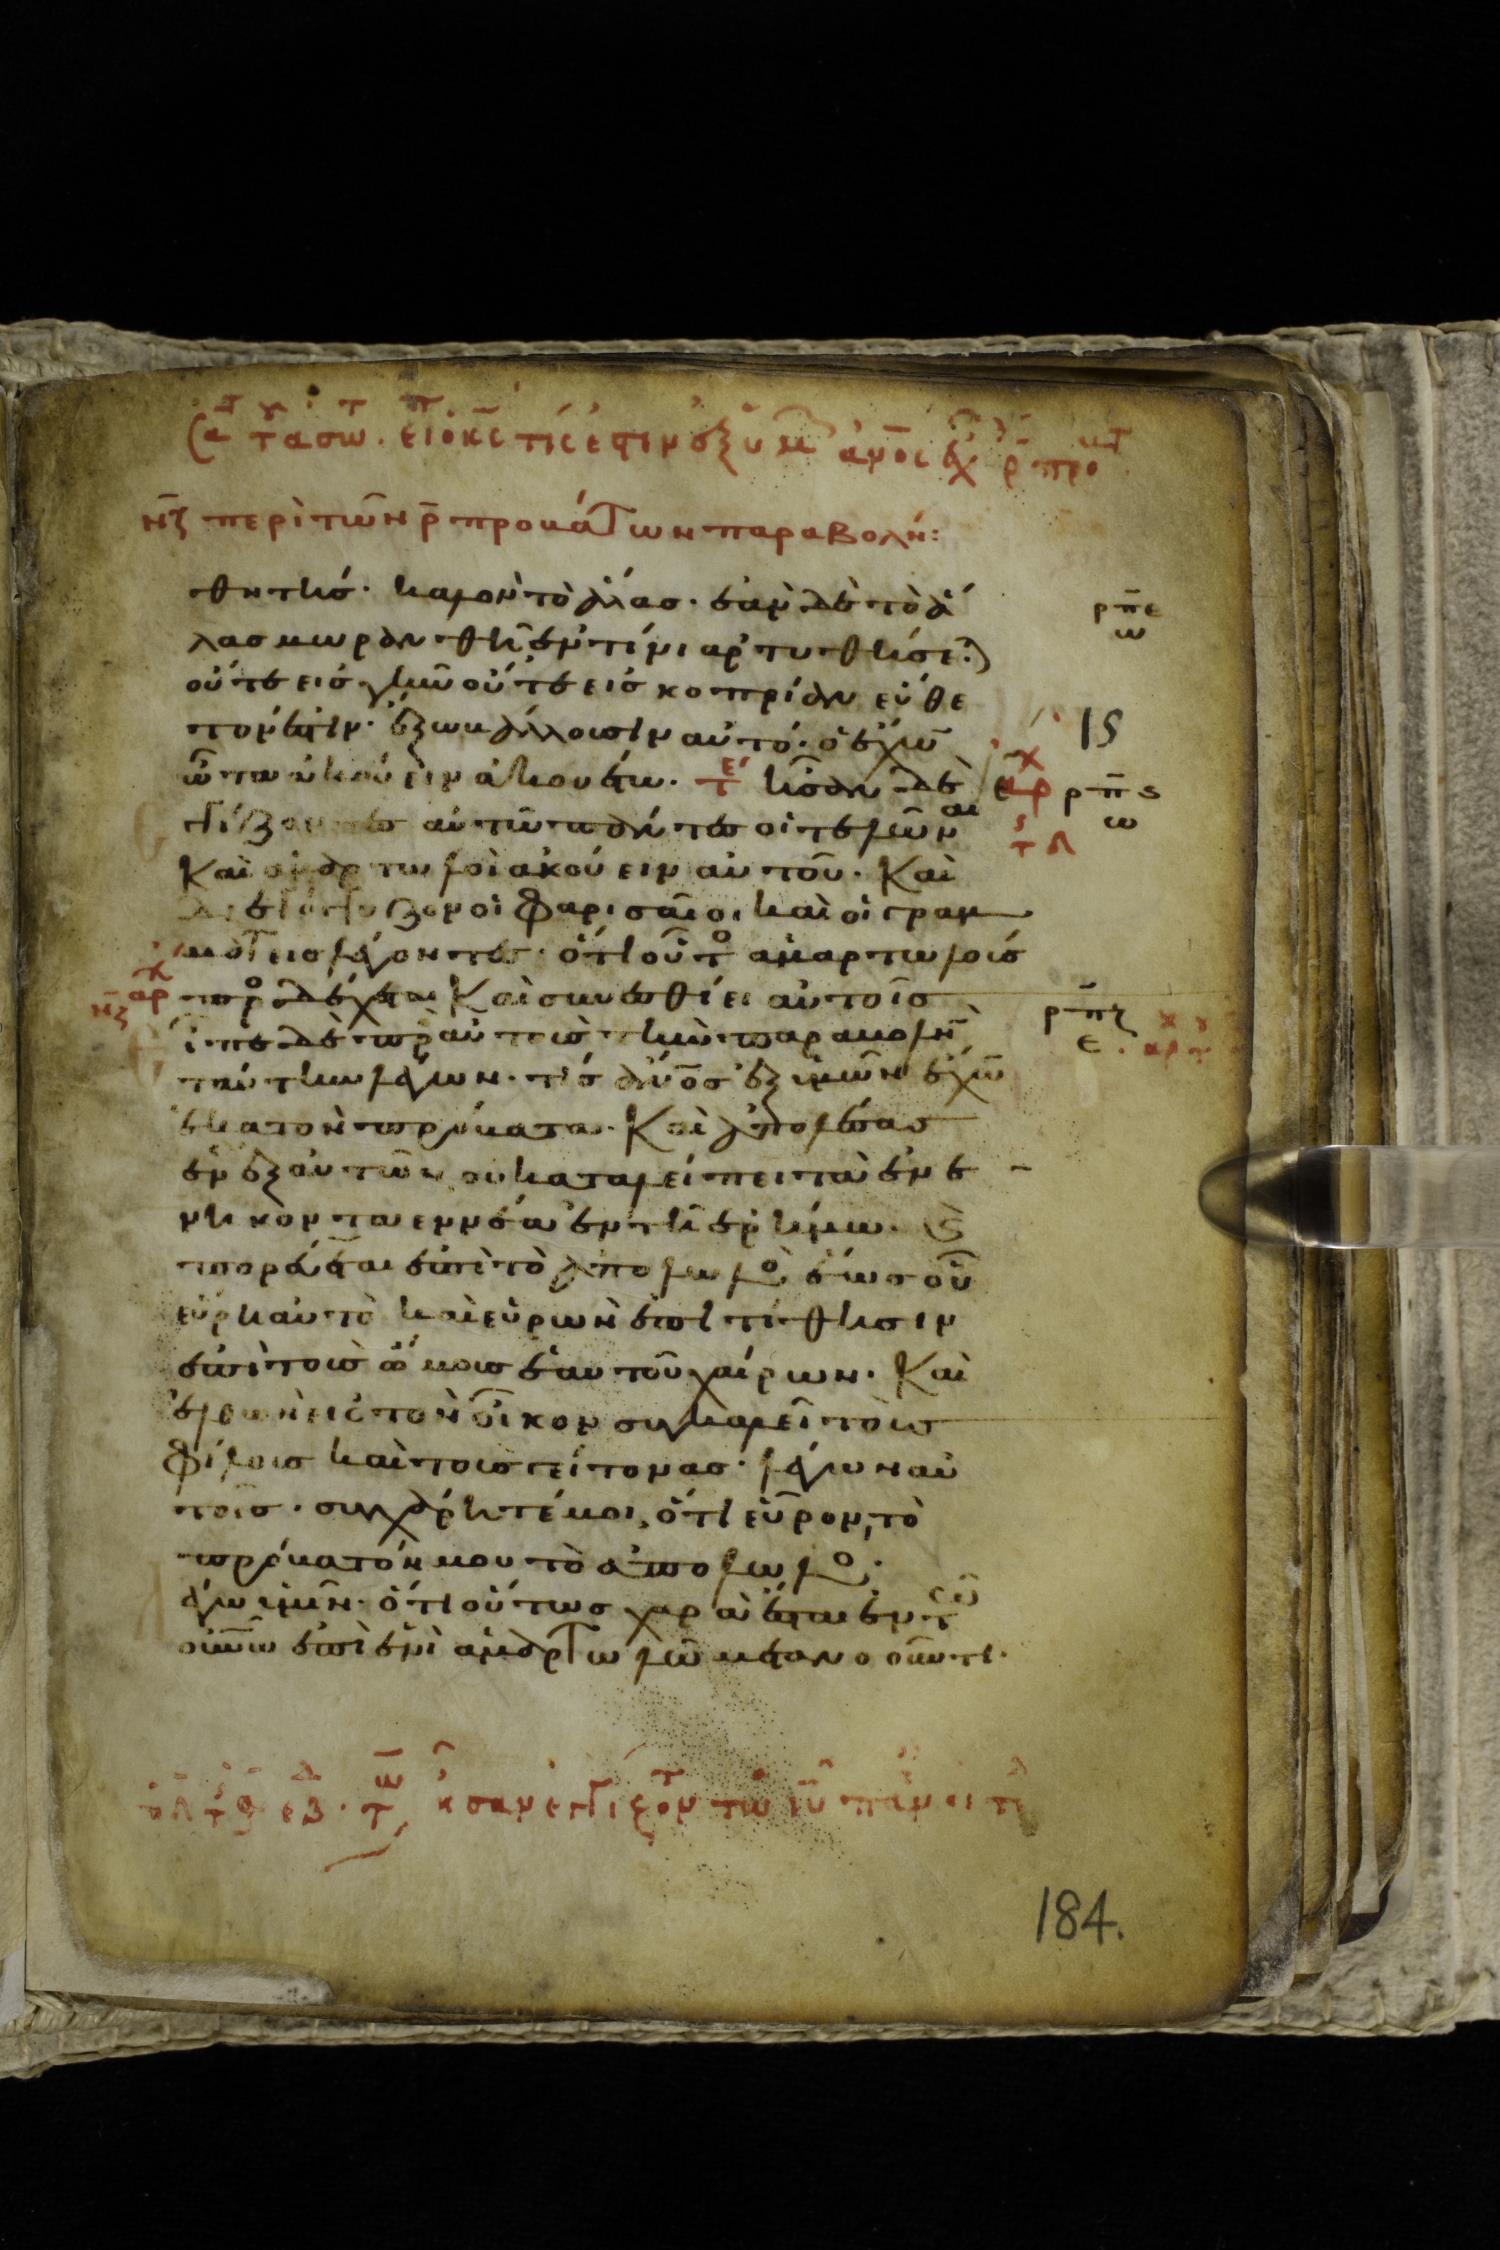 ν̅ζ περὶ τῶν ρ̅ προβάτων παραβολή:
θητής· καλὸν τὸ ἅλας· ἐὰν δὲ τὸ ἅ
λας μωρανθῆ ἐν τίνι ἀρτυθήσε?)
οὔτε εἰς γῆν οὔτε εἰς κοπρίαν εὔθε
τόν ἐστιν· ἔξω βάλλουσιν αὐτό· ὁ ἔχων
ὦτα ἀκούειν ἀκουέτω. ἦσαν δὲ
ἐγγίζοντες αὐτῶ πάντες οἱ τελῶναι
Καὶ ἁμαρτωλοὶ ἀκούειν αὐτοῦ· Καὶ
διεγόγγυζον οἱ Φαρισαῖοι καὶ οἱ γραμ
ματεῖς λέγοντες· ὅτι οὗτο ἁμαρτωλοὺς
προσδέχεται Καὶ συνεσθίει αὐτοῖς
εἶπε δὲ πρὸς αὐτοὺς τὴν παραβολὴν
ταύτην λέγων· τίς ἄνος ἐξ ὑμῶν ἔχων
ἑκατὸν πρόβατα· Καὶ ἀπολέσας
ἓν ἐξ αὐτῶν οὐ καταλείπει τὰ ἐνε
νηκονταεννέα ἐν τῆ ἐρήμω· Καὶ
πορεύεται ἐπὶ τὸ ἀπολωλὸ ἕως οὗ
εὕρη αὐτὸ καὶ εὑρὼν ἐπιτίθησιν
ἐπὶ τοὺς ὤμους ἑαυτοῦ χαίρων· Καὶ
ἐλθὼν εἰς τὸν οἶκον συγκαλεῖ τοὺς
Φίλους καὶ τοὺς γείτονας· λέγων αὐ
τοῖς· συγχάρητέ μοι, ὅτι εὗρον τὸ
πρόβατόν μου τὸ ἀπολωλό·
λέγω ὑμῖν· ὅτι οὕτως χαρὰ ἔσται ἐν τῶ
οὐνῶ ἐπὶ ἑνὶ ἁμαρτωλῶ μετανοοῦντι·
ρ̅π̅ε
ω
15
ρ̅π̅ς
ω
ν̅ζ
αρ
ρ̅π̅ζ
ε
184.